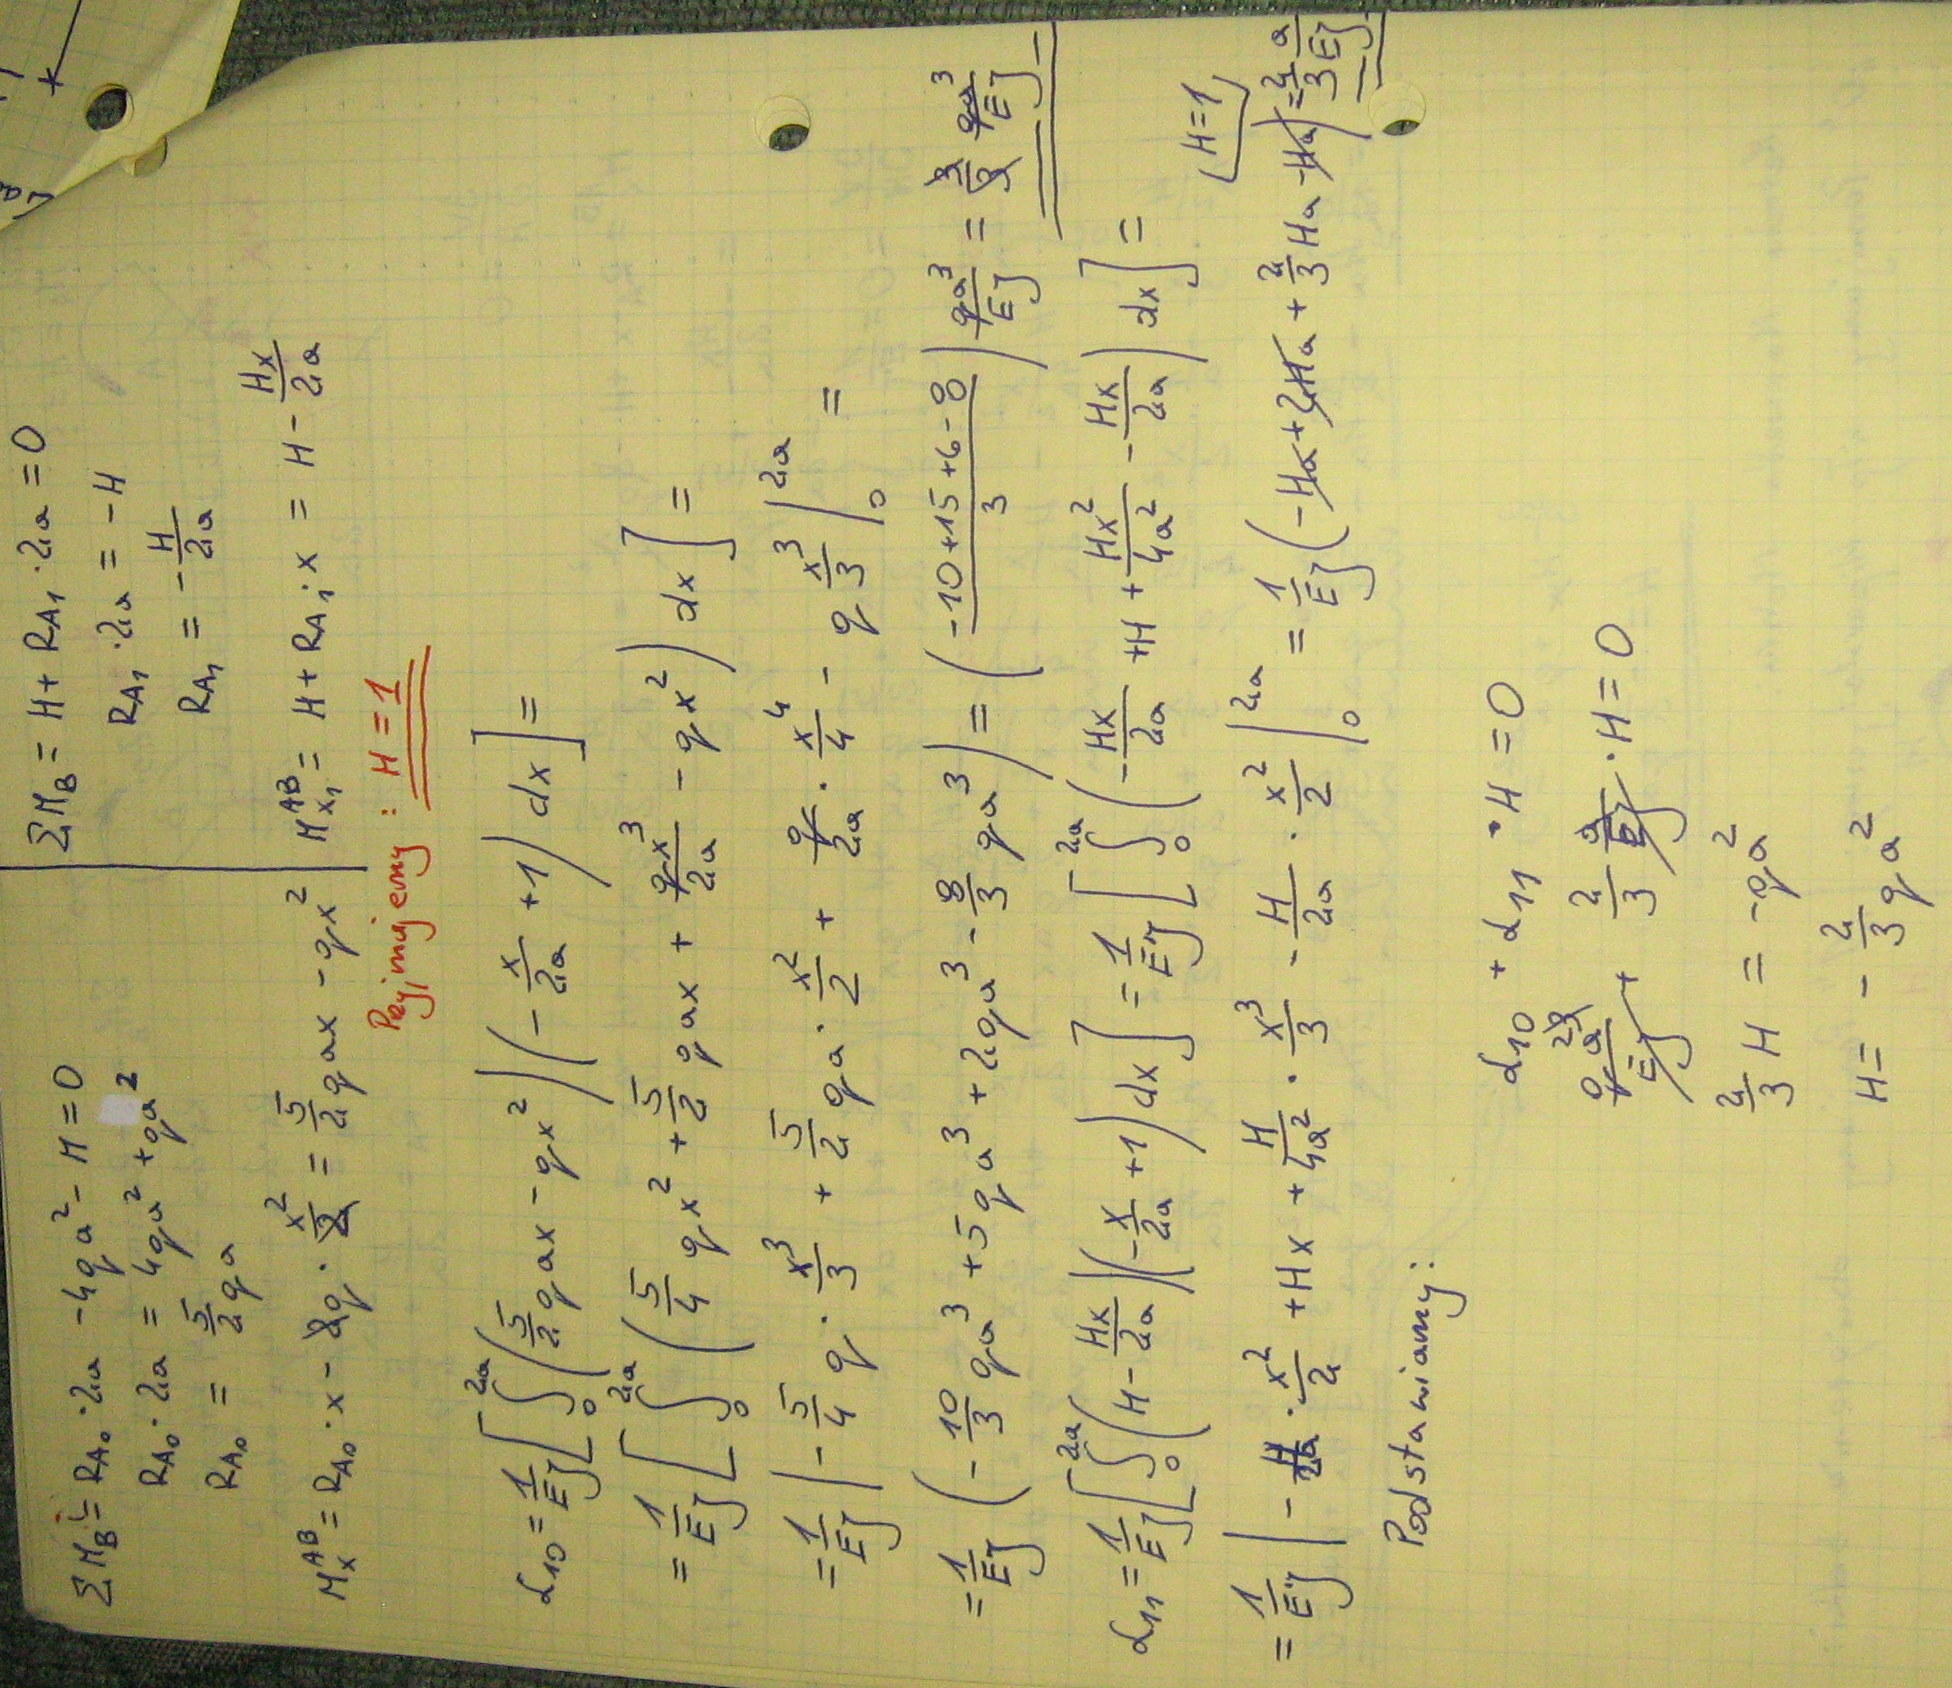 ΣM_B = R_A0 · 2a - 4qa² - H = 0
R_A0 · 2a = 4qa² + qa²
R_A0 = 5/2 qa
M_x^AB = R_A0 · x - 2q · x²/2 = 5/2 qax - qx²
ΣM_B = H + R_A1 · 2a = 0
R_A1 · 2a = -H
R_A1 = - H/2a
M_x1^AB = H + R_A1 · x = H - Hx/2a
Przyjmijemy : H = 1
α10 = 1/EJ [ ∫₀^2a ( 5/2 qax - qx² ) ( - x/2a + 1 ) dx ] =
= 1/EJ [ ∫₀^2a ( 5/4 qx² + 5/2 qax + qx³/2a - qx² ) dx ] =
= 1/EJ | - 5/4 q · x³/3 + 5/2 qa · x²/2 + q/2a · x⁴/4 - q x³/3 |₀^2a =
= 1/EJ ( - 10/3 qa³ + 5qa³ + 2qa³ - 8/3 qa³ ) = ( (-10+15+6-8)/3 ) qa³/EJ = 3/3 qa³/EJ
α11 = 1/EJ [ ∫₀^2a ( H - Hx/2a ) ( - x/2a + 1 ) dx ] = 1/EJ [ ∫₀^2a ( - Hx/2a + H + Hx²/4a² - Hx/2a ) dx ] =
= 1/EJ | - H/2a · x²/2 + Hx + H/4a² · x³/3 - H/2a · x²/2 |₀^2a = 1/EJ ( - Ha + 2Ha + 2/3 Ha - Ha ) = 2/3 a/EJ
H = 1
Podstawiamy:
α10 + α11 · H = 0
qa³/EJ + 2/3 a/EJ · H = 0
2/3 H = -qa²
H = - 2/3 qa²